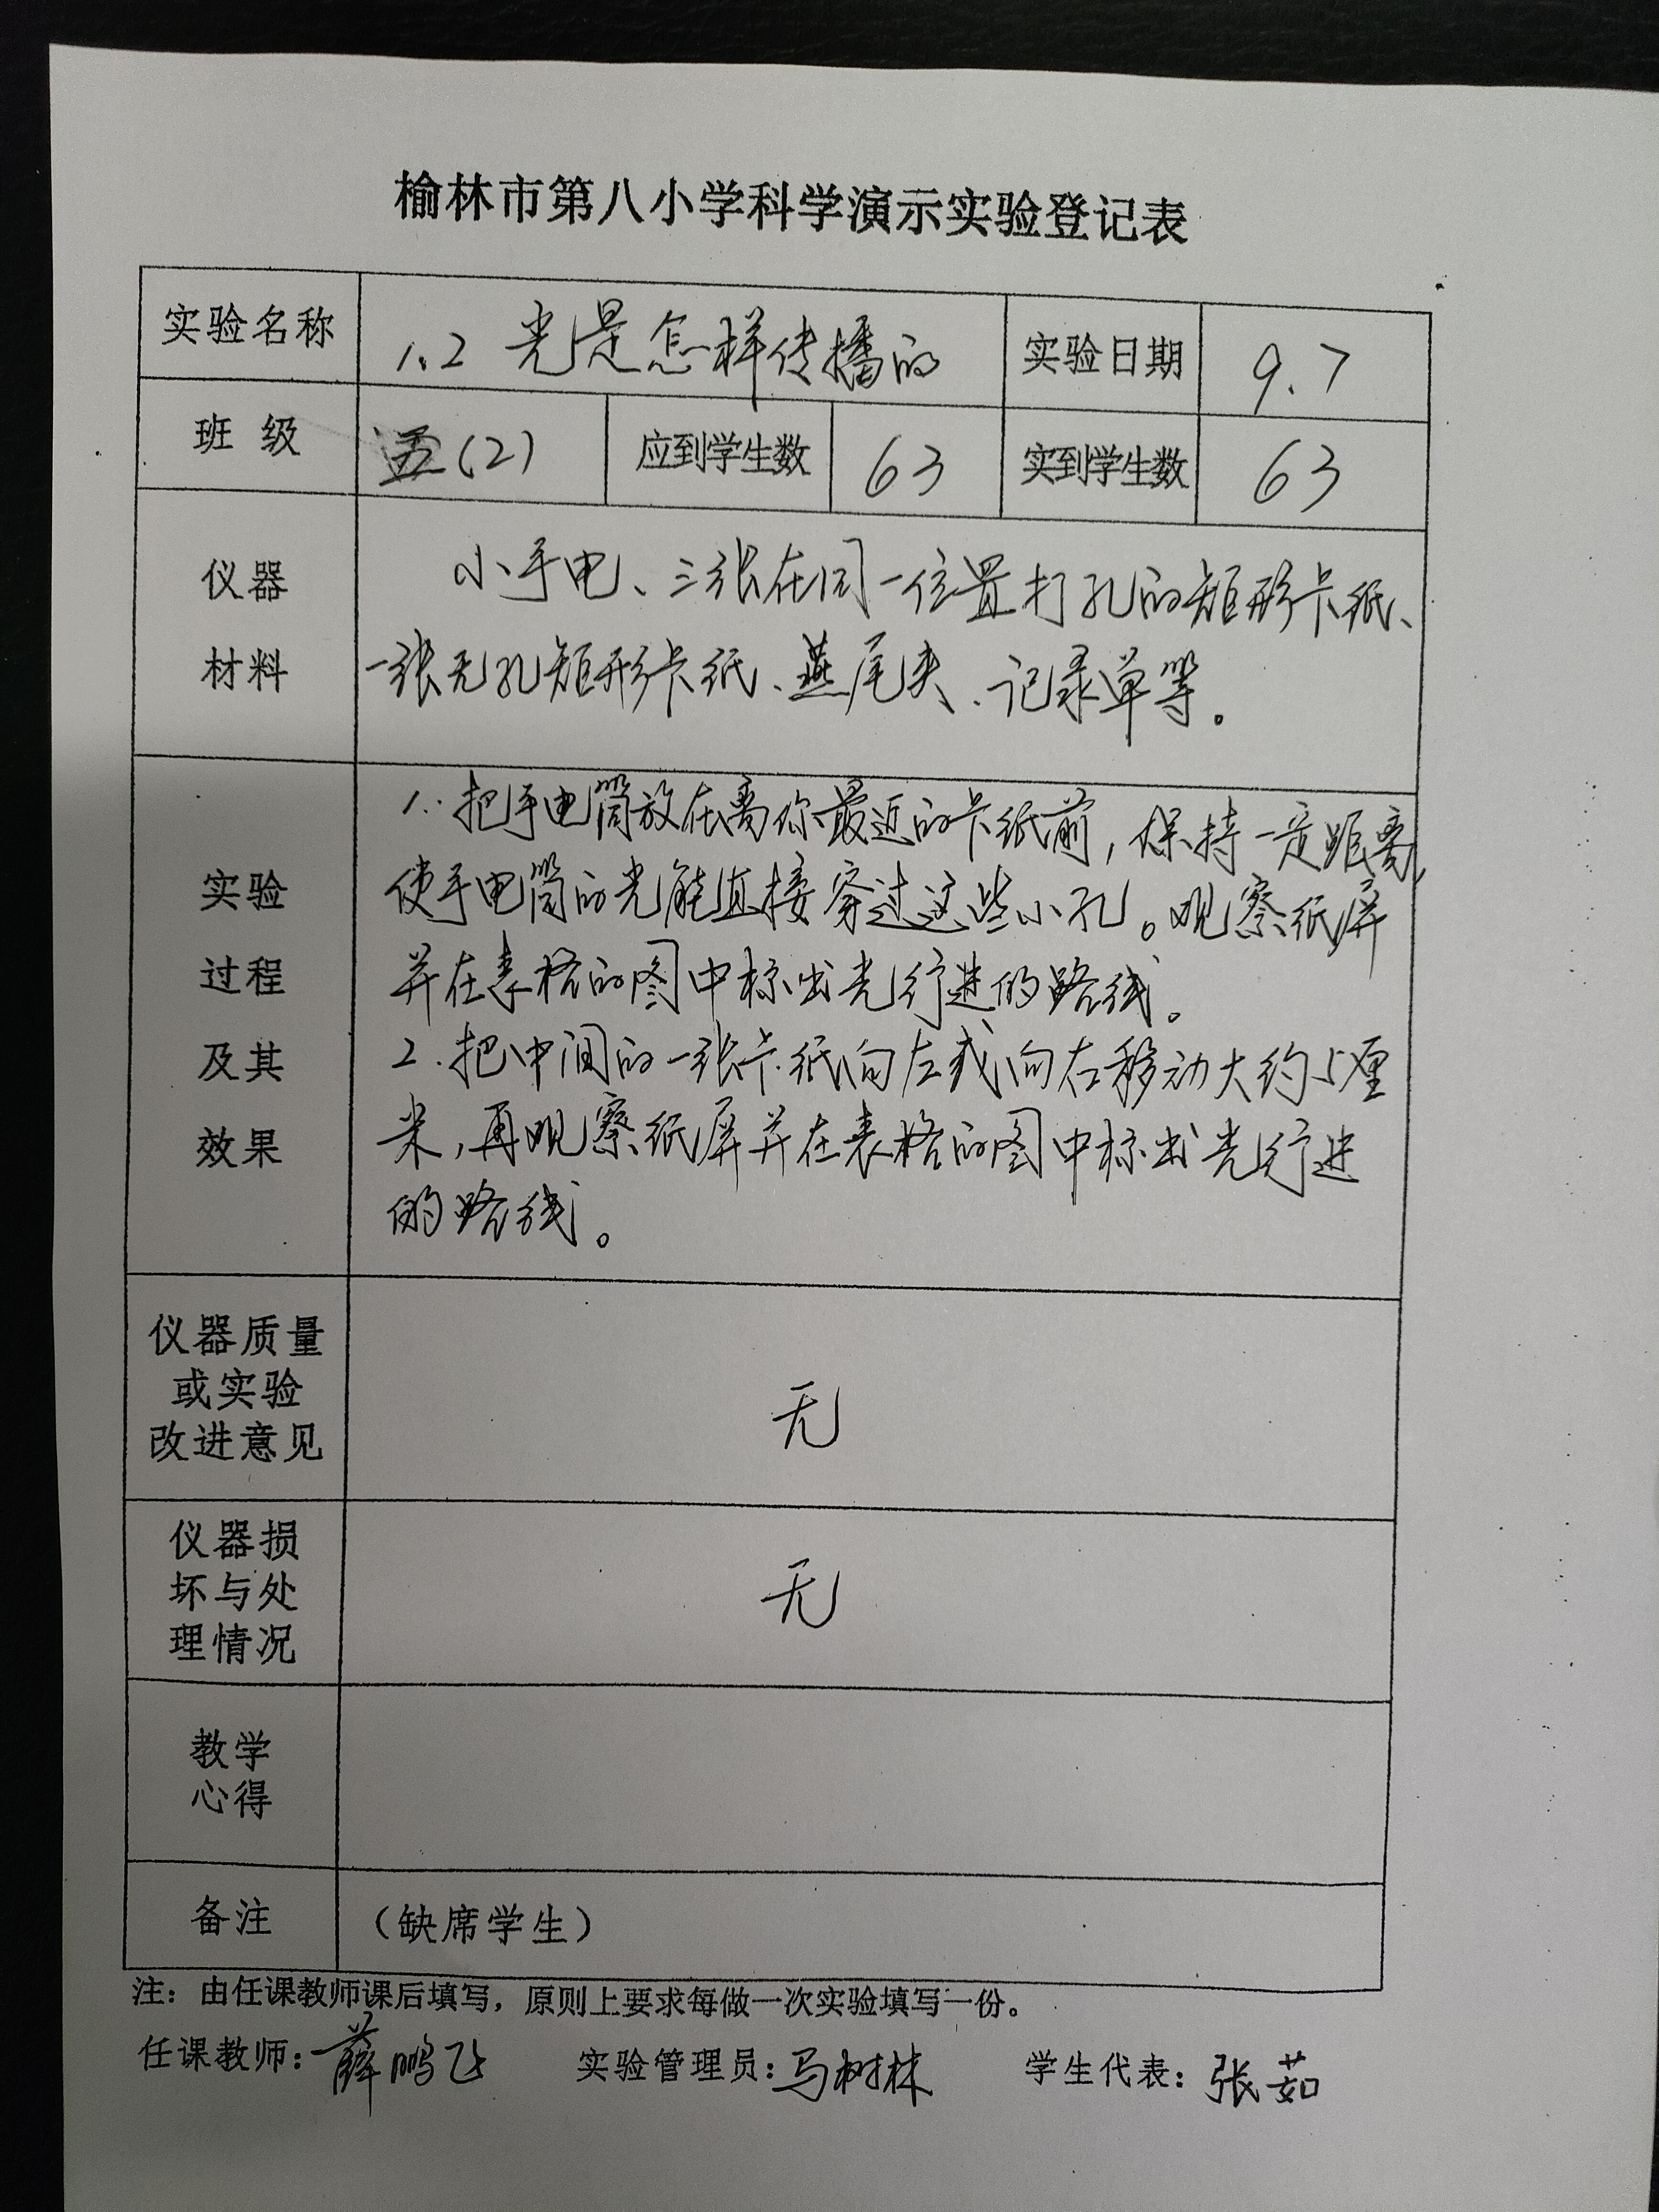 榆林市第八小学科学演示实验登记表
实验名称 1.2 光是怎样传播的 实验日期 9.7
班 级 五(2) 应到学生数 63 实到学生数 63
仪器
材料
小手电、三张在同一位置打孔的矩形卡纸、
一张无孔矩形卡纸、燕尾夹、记录单等。
实验
过程
及其
效果
1.把手电筒放在离你最近的卡纸前,保持一定距离,
使手电筒的光能直接穿过这些小孔。观察纸屏
并在表格的图中标出光行进的路线。
2.把中间的一张卡纸向左或向右移动大约5厘
米,再观察纸屏并在表格的图中标出光行进
的路线。
仪器质量
或实验
改进意见
无
仪器损
坏与处
理情况
无
教学
心得
备注 (缺席学生)
注:由任课教师课后填写,原则上要求每做一次实验填写一份。
任课教师:薛鹏飞 实验管理员:马树林 学生代表:张茹